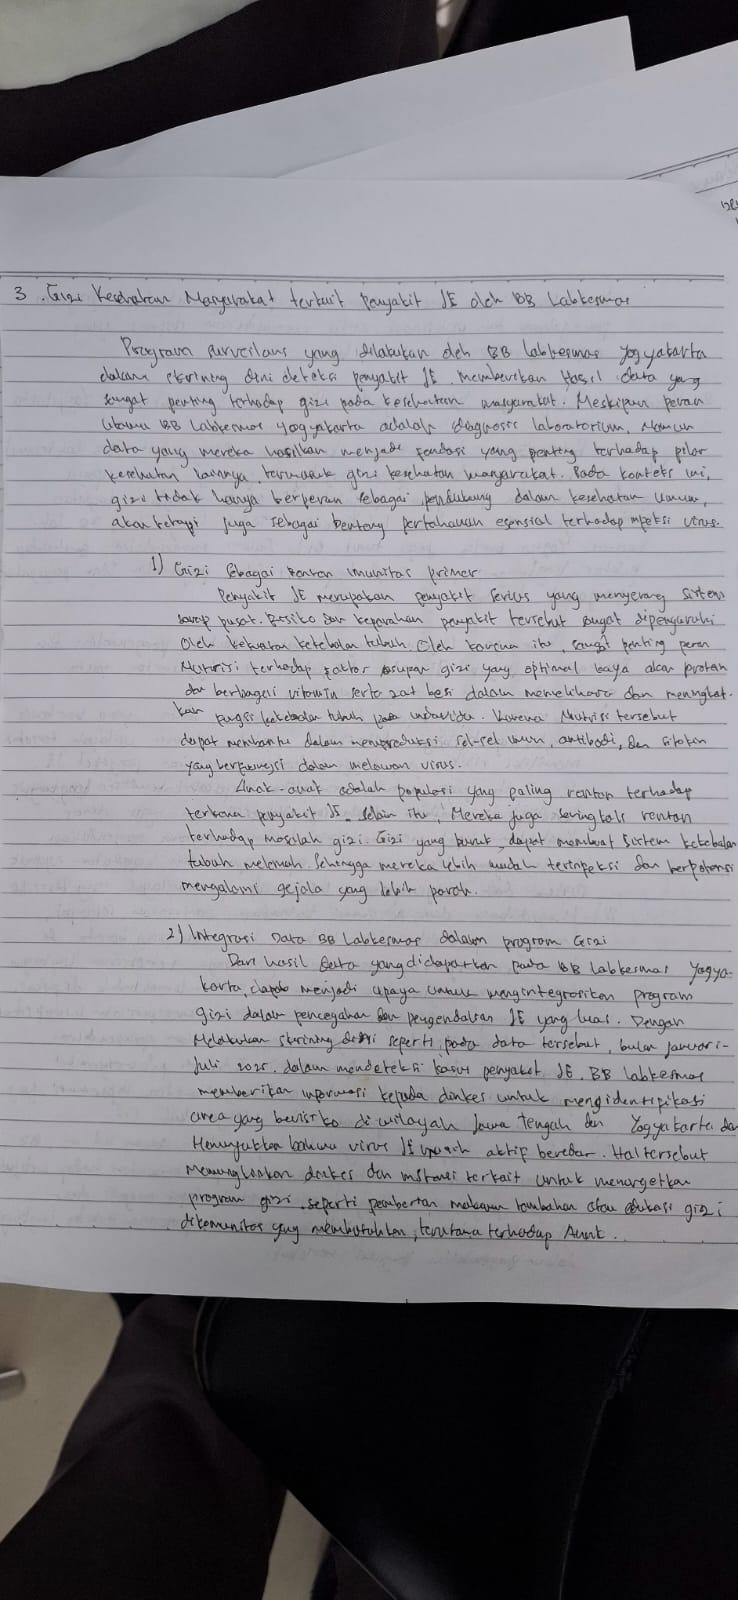 3. Gizi Kesehatan Masyarakat terkait Penyakit JE oleh BB Labkesmas
Program surveilans yang dilakukan oleh BB Labkesmas Yogyakarta
dalam skrining dini deteksi penyakit JE, memberikan hasil data yang
sangat penting terhadap gizi pada kesehatan masyarakat. Meskipun peran
utama BB Labkesmas Yogyakarta adalah diagnosis laboratorium, Namun
data yang mereka hasilkan menjadi fondasi yang penting terhadap pilar
kesehatan lainnya, termasuk gizi kesehatan masyarakat. Pada konteks ini,
gizi tidak hanya berperan sebagai pendukung dalam kesehatan umum,
akan tetapi juga sebagai benteng pertahanan esensial terhadap infeksi virus.
1) Gizi Sebagai Imunitas Primer
Penyakit JE merupakan penyakit serius yang menyerang sistem
saraf pusat. Resiko dan keparahan penyakit tersebut sangat dipengaruhi
oleh kekuatan kekebalan tubuh. Oleh karena itu, sangat penting peran
Nutrisi terhadap faktor asupan gizi yang optimal kaya akan protein
dan berbagai vitamin serta zat besi dalam memelihara dan meningkat-
kan fungsi kekebalan tubuh pada individu. Karena Nutrisi tersebut
dapat membantu dalam memproduksi sel-sel imun, antibodi, dan sitokin
yang berfungsi dalam melawan virus.
Anak-anak adalah populasi yang paling rentan terhadap
terkena penyakit JE. Selain itu, Mereka juga seringkali rentan
terhadap masalah gizi. Gizi yang buruk, dapat membuat sistem kekebalan
tubuh melemah. Sehingga mereka lebih mudah terinfeksi dan berpotensi
mengalami gejala yang lebih parah.
2) Integrasi Data BB Labkesmas dalam program Gizi
Dari hasil data yang didapatkan pada BB Labkesmas Yogya-
karta, dapat menjadi upaya untuk mengintegrasikan program
gizi dalam pencegahan dan pengendalian JE yang luas. Dengan
Melakukan skrining dini seperti pada data tersebut, bulan Januari-
Juli 2025, dalam mendeteksi kasus penyakit JE. BB Labkesmas
memberikan informasi kepada dinkes untuk mengidentifikasi
area yang berisiko di wilayah Jawa Tengah dan Yogyakarta dan
Menunjukkan bahwa virus JE masih aktif beredar. Hal tersebut
Memungkinkan dinkes dan instansi terkait untuk menargetkan
program gizi, seperti pemberian makanan tambahan atau edukasi gizi
di komunitas yang membutuhkan, terutama terhadap Anak.